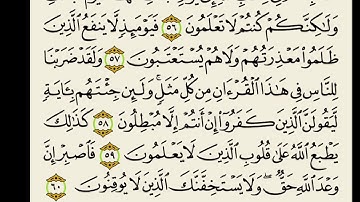 وَلَٰكِنَّكُمْ كُنتُمْ لَا تَعْلَمُونَ ٥٦ فَيَوْمَئِذٍ لَّا يَنفَعُ الَّذِينَ
ظَلَمُوا مَعْذِرَتُهُمْ وَلَا هُمْ يُسْتَعْتَبُونَ ٥٧ وَلَقَدْ ضَرَبْنَا
لِلنَّاسِ فِي هَٰذَا الْقُرْءَانِ مِن كُلِّ مَثَلٍ ۚ وَلَئِن جِئْتَهُم بِـَٔايَةٍ
لَّيَقُولَنَّ الَّذِينَ كَفَرُوا إِنْ أَنتُمْ إِلَّا مُبْطِلُونَ ٥٨ كَذَٰلِكَ
يَطْبَعُ اللَّهُ عَلَىٰ قُلُوبِ الَّذِينَ لَا يَعْلَمُونَ ٥٩ فَاصْبِرْ إِنَّ
وَعْدَ اللَّهِ حَقٌّ ۖ وَلَا يَسْتَخِفَّنَّكَ الَّذِينَ لَا يُوقِنُونَ ٦٠